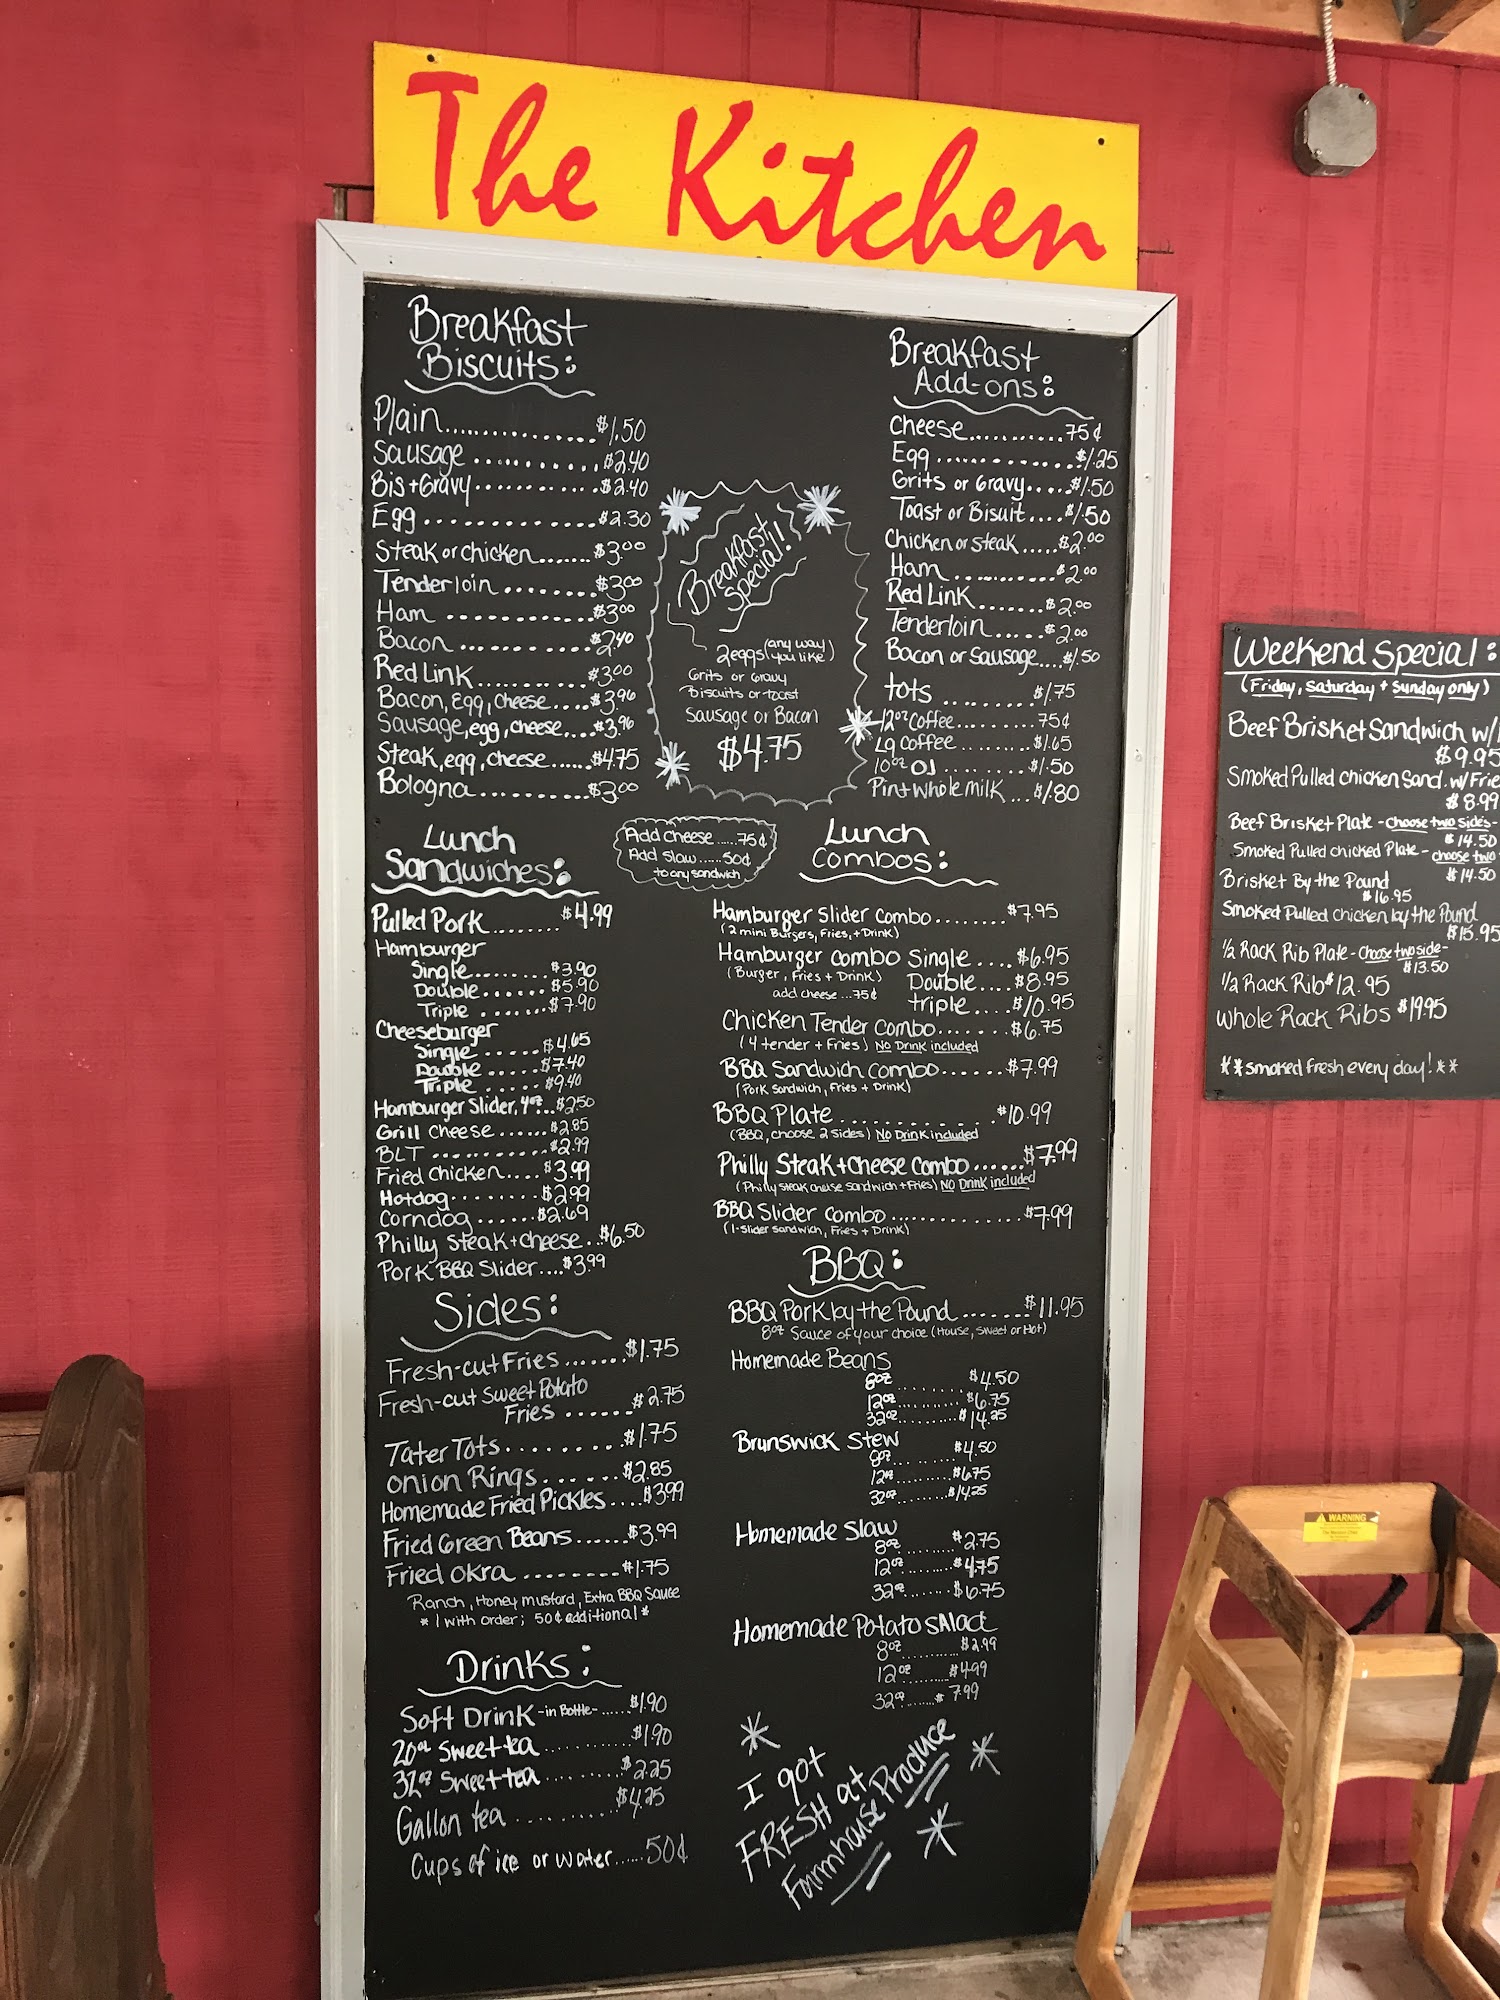 The Kitchen
Breakfast
Biscuits:
Plain..............$1.50
Sausage...........$2.40
Bis+Gravy...........$2.40
Egg..............$2.30
Steak or chicken.......$3.00
Tenderloin.........$3.00
Ham............$3.00
Bacon............$2.40
Red Link..........$3.00
Bacon, Egg, Cheese....$3.96
Sausage, egg, cheese...$3.96
Steak, egg, cheese......$4.75
Bologna...........$3.00
Breakfast
Special!!
2eggs (any way
you like)
Grits or Gravy
Biscuits or toast
Sausage or Bacon
$4.75
Breakfast
Add-ons:
Cheese...........75¢
Egg..............$1.25
Grits or Gravy.....$1.50
Toast or Bisuit....$1.50
Chicken or Steak.....$2.00
Ham............$2.00
Red Link.......$2.00
Tenderloin......$2.00
Bacon or Sausage....$1.50
tots............$1.75
12oz Coffee.........75¢
Lg Coffee.........$1.65
10oz OJ.........$1.50
Pint Whole milk...$1.80
Lunch
Sandwiches:
Pulled Pork........$4.99
Hamburger
Single........$3.90
Double......$5.90
Triple.......$7.90
Cheeseburger
Single......$4.65
Double......$7.40
Triple......$9.40
Hamburger Slider, 4oz...$2.50
Grill Cheese......$2.85
BLT............$2.99
Fried Chicken....$3.99
Hotdog.........$2.99
Corndog......$2.69
Philly Steak+cheese..$6.50
Pork BBQ Slider....$3.99
Add cheese......75¢
Add slaw......50¢
to any sandwich
Lunch
Combos:
Hamburger Slider Combo........$7.95
(2 mini Burgers, Fries, + Drink)
Hamburger Combo Single....$6.95
(Burger, Fries + Drink) Double....$8.95
add cheese...75¢ triple....$10.95
Chicken Tender Combo.......$6.75
(4 tender + Fries) No Drink included
BBQ Sandwich Combo......$7.99
(Pork Sandwich, Fries + Drink)
BBQ Plate............$10.99
(BBQ, choose 2 sides) No Drink included
Philly Steak+Cheese Combo......$7.99
(Philly steak cheese sandwich + Fries) NO Drink included
BBQ Slider Combo............$7.99
(1-slider sandwich, Fries + Drink)
Sides:
Fresh-cut Fries.......$1.75
Fresh-cut Sweet Potato
Fries......$2.75
Tater Tots.........$1.75
Onion Rings......$2.85
Homemade Fried Pickles....$3.99
Fried Green Beans......$3.99
Fried Okra.........$1.75
Ranch, Honey mustard, Extra BBQ Sauce
* 1 with order; 50¢ additional *
BBQ:
BBQ Pork by the Pound.......$11.95
8oz Sauce of your choice (House, Sweet or Hot)
Homemade Beans
8oz........$4.50
12oz.........$6.75
32oz.........$14.25
Brunswick Stew
8oz......$4.50
12oz.........$6.75
32oz........$14.25
Homemade Slaw
8oz........$2.75
12oz.......$4.75
32oz.......$6.75
Homemade Potato sAlad
8oz...........$2.99
12oz.......$4.99
32oz......$7.99
Drinks:
Soft Drink -in Bottle-......$1.90
20oz Sweet tea..........$1.90
32oz Sweet tea.........$2.25
Gallon tea...........$4.25
Cups of ice or water......50¢
I got
FRESH at
Farmhouse Produce
Weekend Special:
(Friday, Saturday + Sunday only)
Beef Brisket Sandwich w/
$9.95
Smoked Pulled Chicken Sand. w/Frie
$8.99
Beef Brisket Plate -choose two sides-
$14.50
Smoked Pulled chicked Plate - choose two
$14.50
Brisket By the Pound
$16.95
Smoked Pulled Chicken by the Pound
$15.95
1/2 Rack Rib Plate -choose two side-
$13.50
1/2 Rack Rib $12.95
Whole Rack Ribs $19.95
**smoked fresh every day!**
WARNING